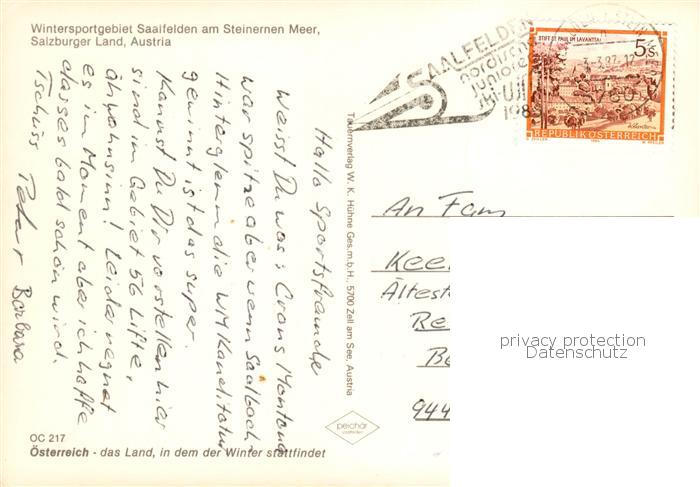 Wintersportgebiet Saalfelden am Steinernen Meer,
Salzburger Land, Austria
Hallo Sportsfreunde
weisst Du was: Crans Montana
war spitze aber wenn Saalbach
Hinterglemm die WM Kanditatur
gewinnt ist das super.
Kannst Du Dir vorstellen hier
sind im Gebiet 56 Lifte,
ahwahnsinn! Leider regnet
es im Moment aber ich hoffe
dasses bald schön wird.
Tschüss Peter Barbara
OC 217
Österreich - das Land, in dem der Winter stattfindet
Tauernverlag W. K. Hühne Ges. m. b. H., 5700 Zell am See, Austria
peichär
SAALFELDEN
nordische
Junioren
STIFT ST. PAUL IM LAVANTTAL
5 S
REPUBLIK ÖSTERREICH
An Fam
Kee
Ältest
Re
Be
944
privacy protection
Datenschutz